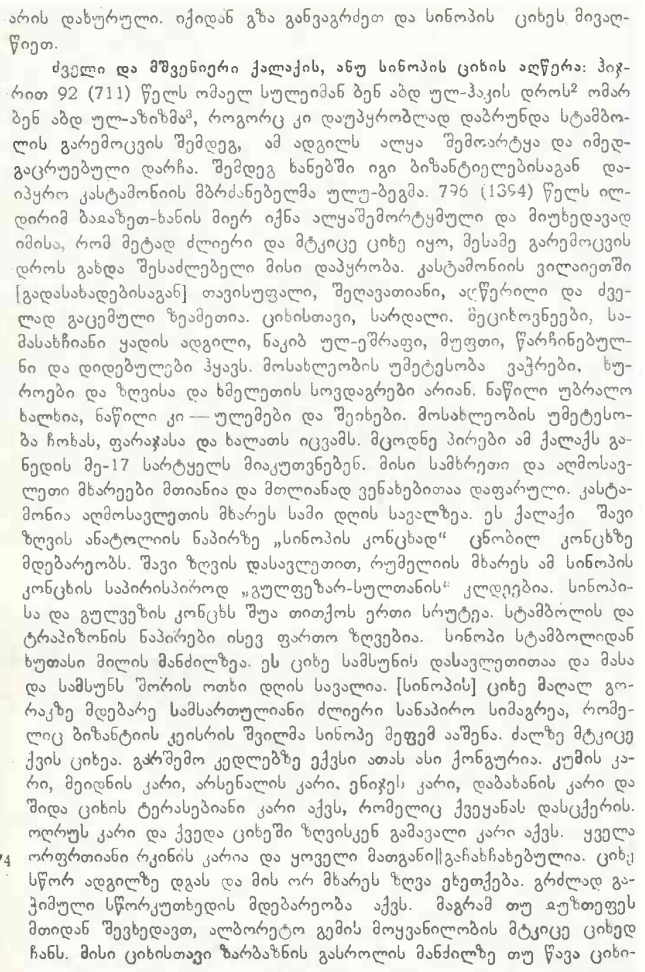 არის დახურული. იქიდან გზა განვაგრძეთ და სინოპის ციხეს მივაღ-
წიეთ.
ძველი და მშვენიერი ქალაქის, ანუ სინოპის ციხის აღწერა: ჰიჯ-
რით 92 (711) წელს ომაელ სულეიმან ბენ აბდ ულ-ჰაკის დროს² ომარ
ბენ აბდ ულ-აზიზმა³, როგორც კი დაუპყრობლად დაბრუნდა სტამბო-
ლის გარემოცვის შემდეგ, ამ ადგილს ალყა შემოარტყა და იმედ-
გაცრუებული დარჩა. შემდეგ ხანებში იგი ბიზანტიელებისაგან და-
იპყრო კასტამონიის მბრძანებელმა ულუ-ბეგმა. 796 (1394) წელს ილ-
დირიმ ბაჲაზეთ-ხანის მიერ იქნა ალყაშემორტყმული და მიუხედავად
იმისა, რომ მეტად ძლიერი და მტკიცე ციხე იყო, მესამე გარემოცვის
დროს გახდა შესაძლებელი მისი დაპყრობა. კასტამონიის ვილაიეთში
[გადასახადებისაგან] თავისუფალი, შეღავათიანი, აღწერილი და ძვე-
ლად გაცემული ზეამეთია. ციხისთავი, სარდალი, მეციხოვნეები, სა-
მასახჩიანი ყადის ადგილი, ნაკიბ ულ-ეშრაფი, მუფთი, წარჩინებულ-
ნი და დიდებულები ჰყავს. მოსახლეობის უმეტესობა ვაჭრები, ხუ-
როები და ზღვისა და ხმელეთის სოვდაგრები არიან. ნაწილი უბრალო
ხალხია, ნაწილი კი — ულემები და შეიხები. მოსახლეობის უმეტესო-
ბა ჩოხას, ფარაჯასა და ხალათს იცვამს. მცოდნე პირები ამ ქალაქს გა-
ნედის მე-17 სარტყელს მიაკუთვნებენ. მისი სამხრეთი და აღმოსავ-
ლეთი მხარეები მთიანია და მთლიანად ვენახებითაა დაფარული. კასტა-
მონია აღმოსავლეთის მხარეს სამი დღის სავალზეა. ეს ქალაქი შავი
ზღვის ანატოლიის ნაპირზე „სინოპის კონცხად“ ცნობილ კონცხზე
მდებარეობს. შავი ზღვის დასავლეთით, რუმელიის მხარეს ამ სინოპის
კონცხის საპირისპიროდ „გულფეზარ-სულთანის“ კლდეებია. სინოპი-
სა და გულვეზის კონცხს შუა თითქოს ერთი სრუტეა. სტამბოლის და
ტრაპიზონის ნაპირები ისევ ფართო ზღვებია. სინოპი სტამბოლიდან
ხუთასი მილის მანძილზეა. ეს ციხე სამსუნის დასავლეთითაა და მასა
და სამსუნს შორის ოთხი დღის სავალია. [სინოპის] ციხე მაღალ გო-
რაკზე მდებარე სამსართულიანი ძლიერი სანაპირო სიმაგრეა, რომე-
ლიც ბიზანტიის კეისრის შვილმა სინოპე მეფემ ააშენა. ძალზე მტკიცე
ქვის ციხეა. გარშემო კედლებზე ექვსი ათას ასი ქონგურია. კუმის კა-
რი, მეიდნის კარი, არსენალის კარი, ენიჯეს კარი, დაბახანის კარი და
შიდა ციხის ტერასებიანი კარი აქვს, რომელიც ქვეყანას დასცქერის.
ოღრუს კარი და ქვედა ციხეში ზღვისკენ გამავალი კარი აქვს. ყველა
74 ორფრთიანი რკინის კარია და ყოველი მათგანი||გაჩახჩახებულია. ციხე
სწორ ადგილზე დგას და მის ორ მხარეს ზღვა ეხეთქება. გრძლად გა-
ჭიმული სწორკუთხედის მდებარეობა აქვს. მაგრამ თუ ჲუზთეფეს
მთიდან შევხედავთ, ალბორეტო გემის მოყვანილობის მტკიცე ციხედ
ჩანს. მისი ციხისთავი ზარბაზნის გასროლის მანძილზე თუ წავა ციხი-